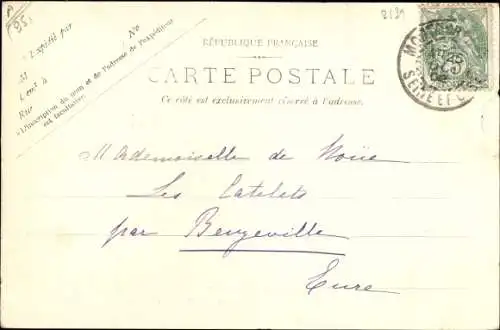 A
95
2139
Expédié par
M
N°
Rue
L'inscription du nom et de l'adresse de l'expéditeur
est facultative.
RÉPUBLIQUE FRANÇAISE
CARTE POSTALE
Ce côté est exclusivement réservé à l'adresse.
SEINE ET
5
Mademoiselle de Noüe
Les Catelets
par Beuzeville
Eure